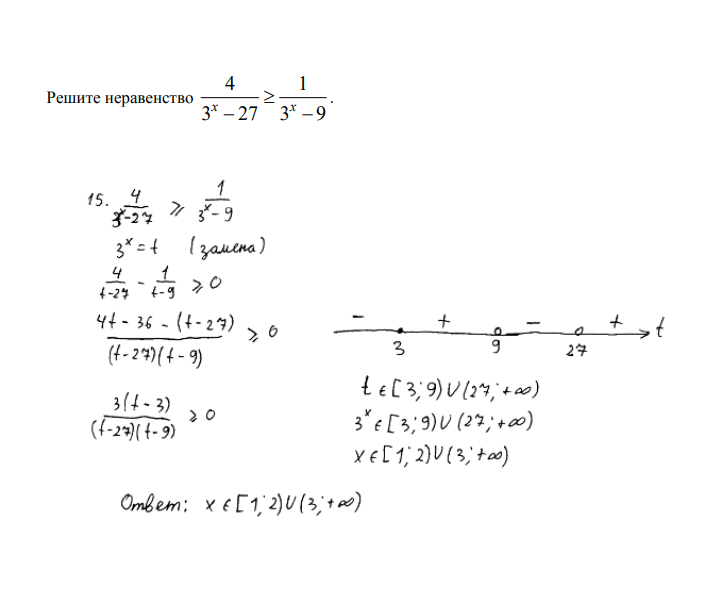 Решите неравенство 4/(3^x − 27) ≥ 1/(3^x − 9).
15. 4/(3^x-27) ⩾ 1/(3^x-9)
3^x = t (замена)
4/(t-27) - 1/(t-9) ⩾ 0
(4t - 36 - (t-27))/((t-27)(t-9)) ⩾ 0
3(t-3)/((t-27)(t-9)) ⩾ 0
− + − + t
3 9 27
t ∈ [3; 9) ∪ (27; +∞)
3^x ∈ [3; 9) ∪ (27; +∞)
x ∈ [1; 2) ∪ (3; +∞)
Ответ: x ∈ [1; 2) ∪ (3; +∞)